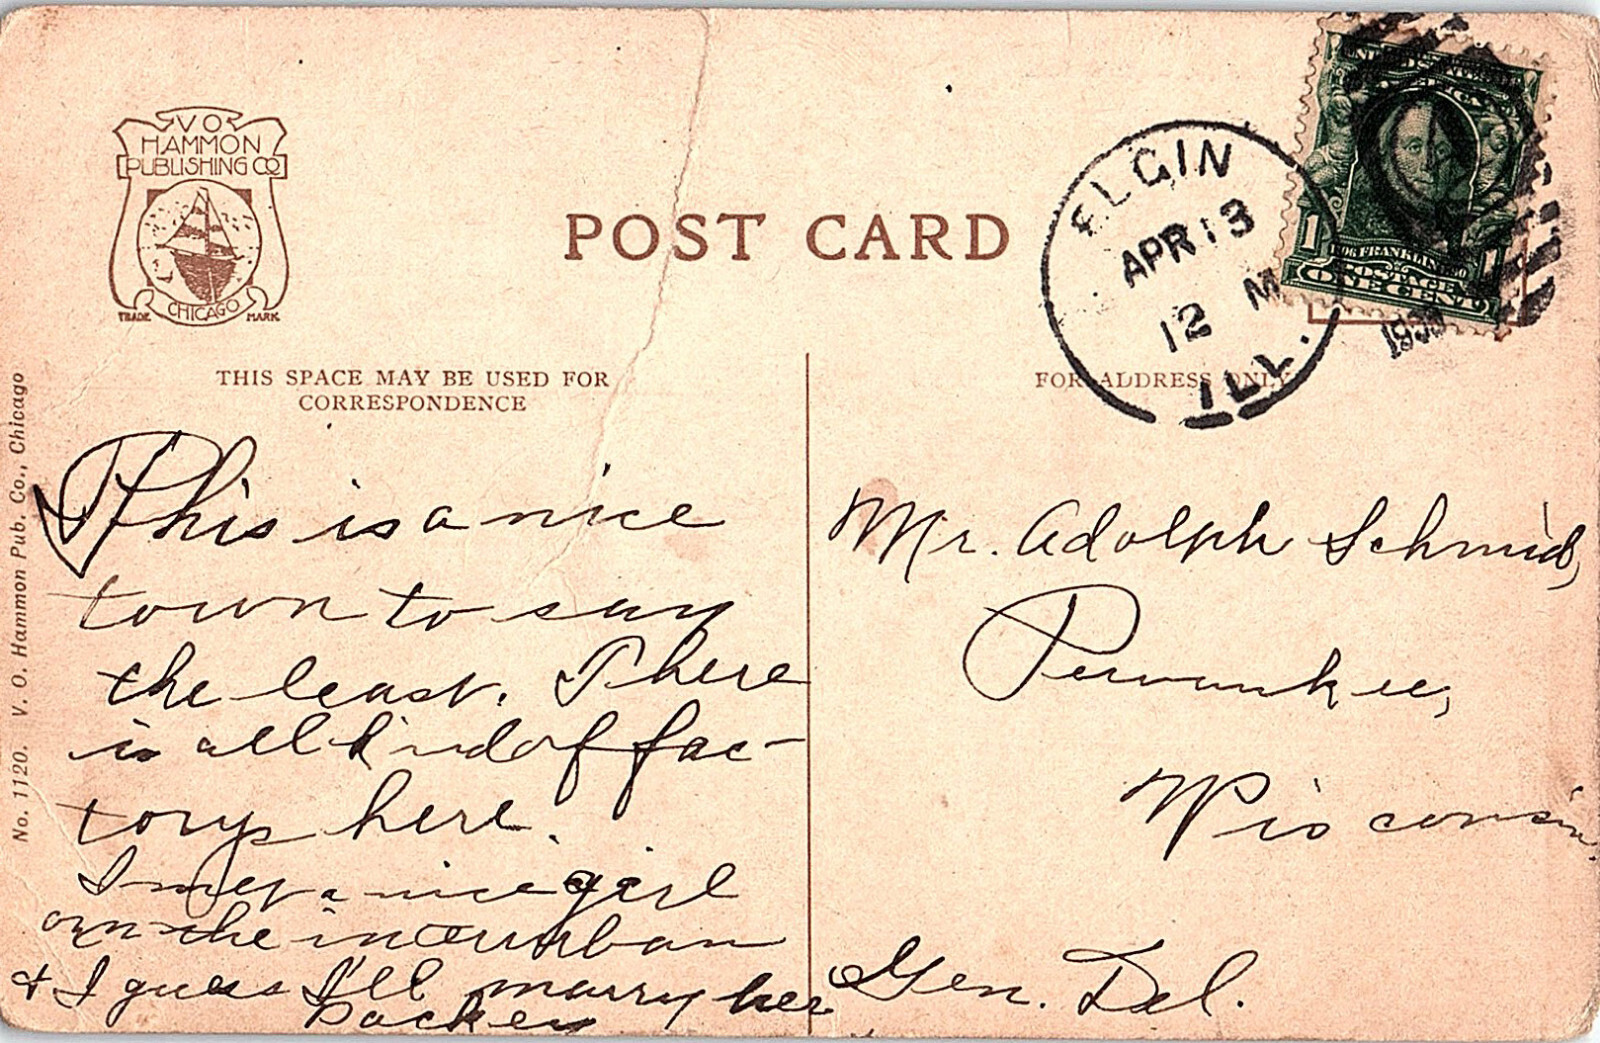 V O
HAMMON
PUBLISHING CO
CHICAGO
TRADE MARK
POST CARD
ELGIN
APR 13
12 M
ILL.
1
1
FRANKLIN
POSTAGE
ONE CENT
THIS SPACE MAY BE USED FOR
CORRESPONDENCE
FOR ADDRESS ONLY
No. 1120. V. O. Hammon Pub. Co., Chicago
This is a nice
town to say
the least. There
is all kind of fac-
torys here.
I met a nice girl
on the interurban
& I guess I'll marry her
Mr. Adolph Schmid,
Pewaukee,
Wisconsin.
Gen. Del.